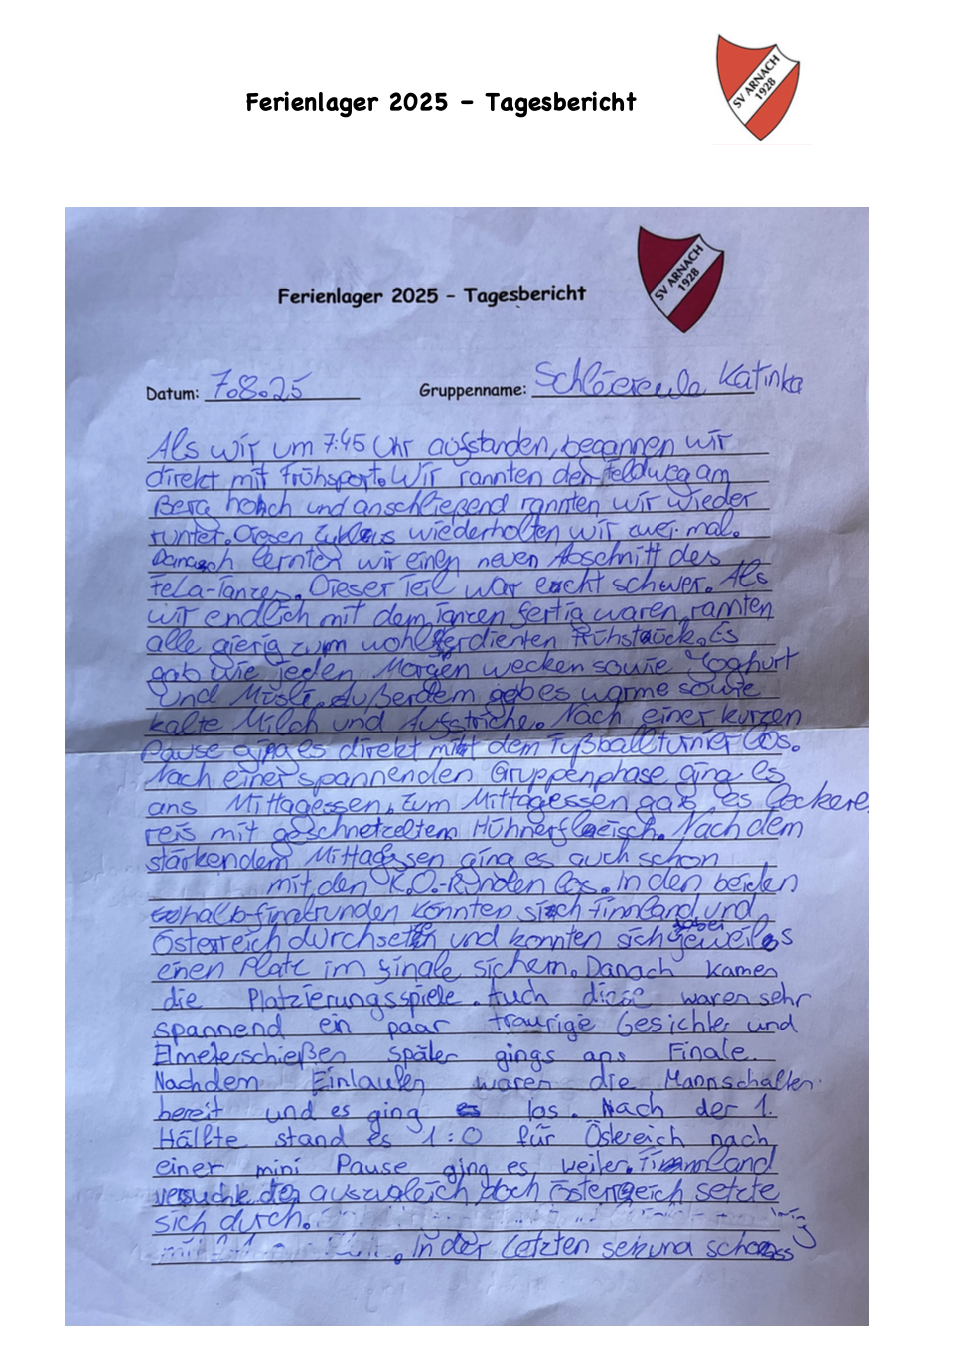 Ferienlager 2025 – Tagesbericht
SV ARNACH
1928
Ferienlager 2025 – Tagesbericht
SV ARNACH
1928
Datum: 7.8.25
Gruppenname: Katinka
Als wir um 7:45 Uhr aufstanden, begannen wir
direkt mit Frühsport. Wir rannten den Feldweg am
Berg hoch und anschließend rannten wir wieder
runter. Diesen Zyklus wiederholten wir zwei mal.
Danach lernten wir einen neuen Abschnitt des
FeLa-Tanzes. Dieser Teil war echt schwer. Als
wir endlich mit dem Tanzen fertig waren, rannten
alle gierig zum wohlferdienten Frühstück. Es
gab wie jeden Morgen wecken sowie Yoghurt
und Müsli. Außerdem gab es warme sowie
kalte Milch und Aufstriche. Nach einer kurzen
Pause ging es direkt mit dem Fußballturnier los.
Nach einer spannenden Gruppenphase ging es
ans Mittagessen. Zum Mittagessen gab es leckere
reis mit geschnetzeltem Hühnerfleisch. Nach dem
stärkendem Mittagessen ging es auch schon
mit den K.O.-Runden los. In den beiden
halb-finalrunden konnten sich Finnland und
Österreich durchsetzen und konnten sich jeweils
einen Platz im finale sichern. Danach kamen
die Platzierungsspiele. Auch diese waren sehr
spannend ein paar traurige Gesichter und
Elmeterschießen später gings ans Finale.
Nachdem Einlaufen waren die Mannschaften
bereit und es ging los. Nach der 1.
Hälfte stand es 1:0 für Östereich nach
einer mini Pause ging es weiter. Finnland
versuchte den auszugleich doch österreich setzte
sich durch.
. In der letzten schoss